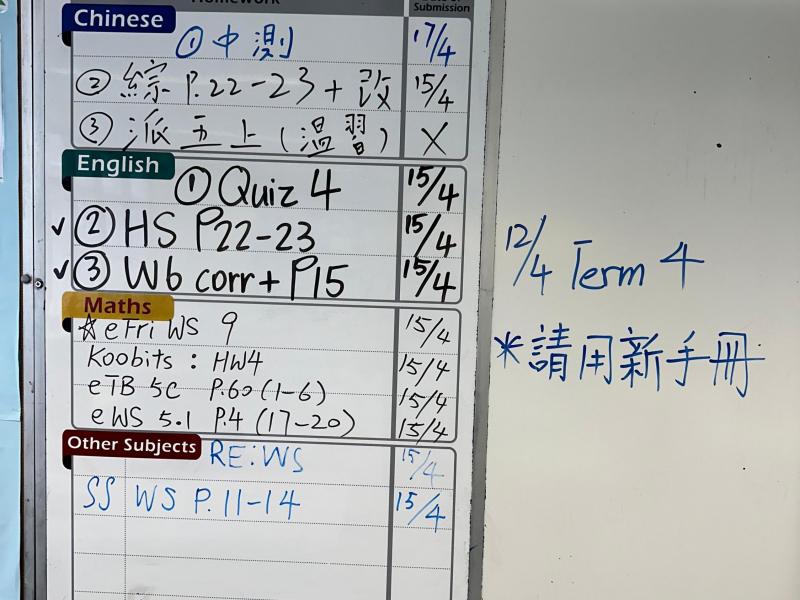 Homework
Submission
Chinese
① 中測 17/4
② 綜 P.22-23 + 改 15/4
③ 派五上(溫習) X
English
① Quiz 4 15/4
✓ ② HS P22-23 15/4
✓ ③ W6 corr + P15 15/4
Maths
☆ eFri WS 9 15/4
Koobits : HW4 15/4
eTB 5C P.60 (1-6) 15/4
eWS 5.1 P.4 (17-20) 15/4
Other Subjects
RE: WS 15/4
SS WS P.11-14 15/4
12/4 Term 4
*請用新手冊